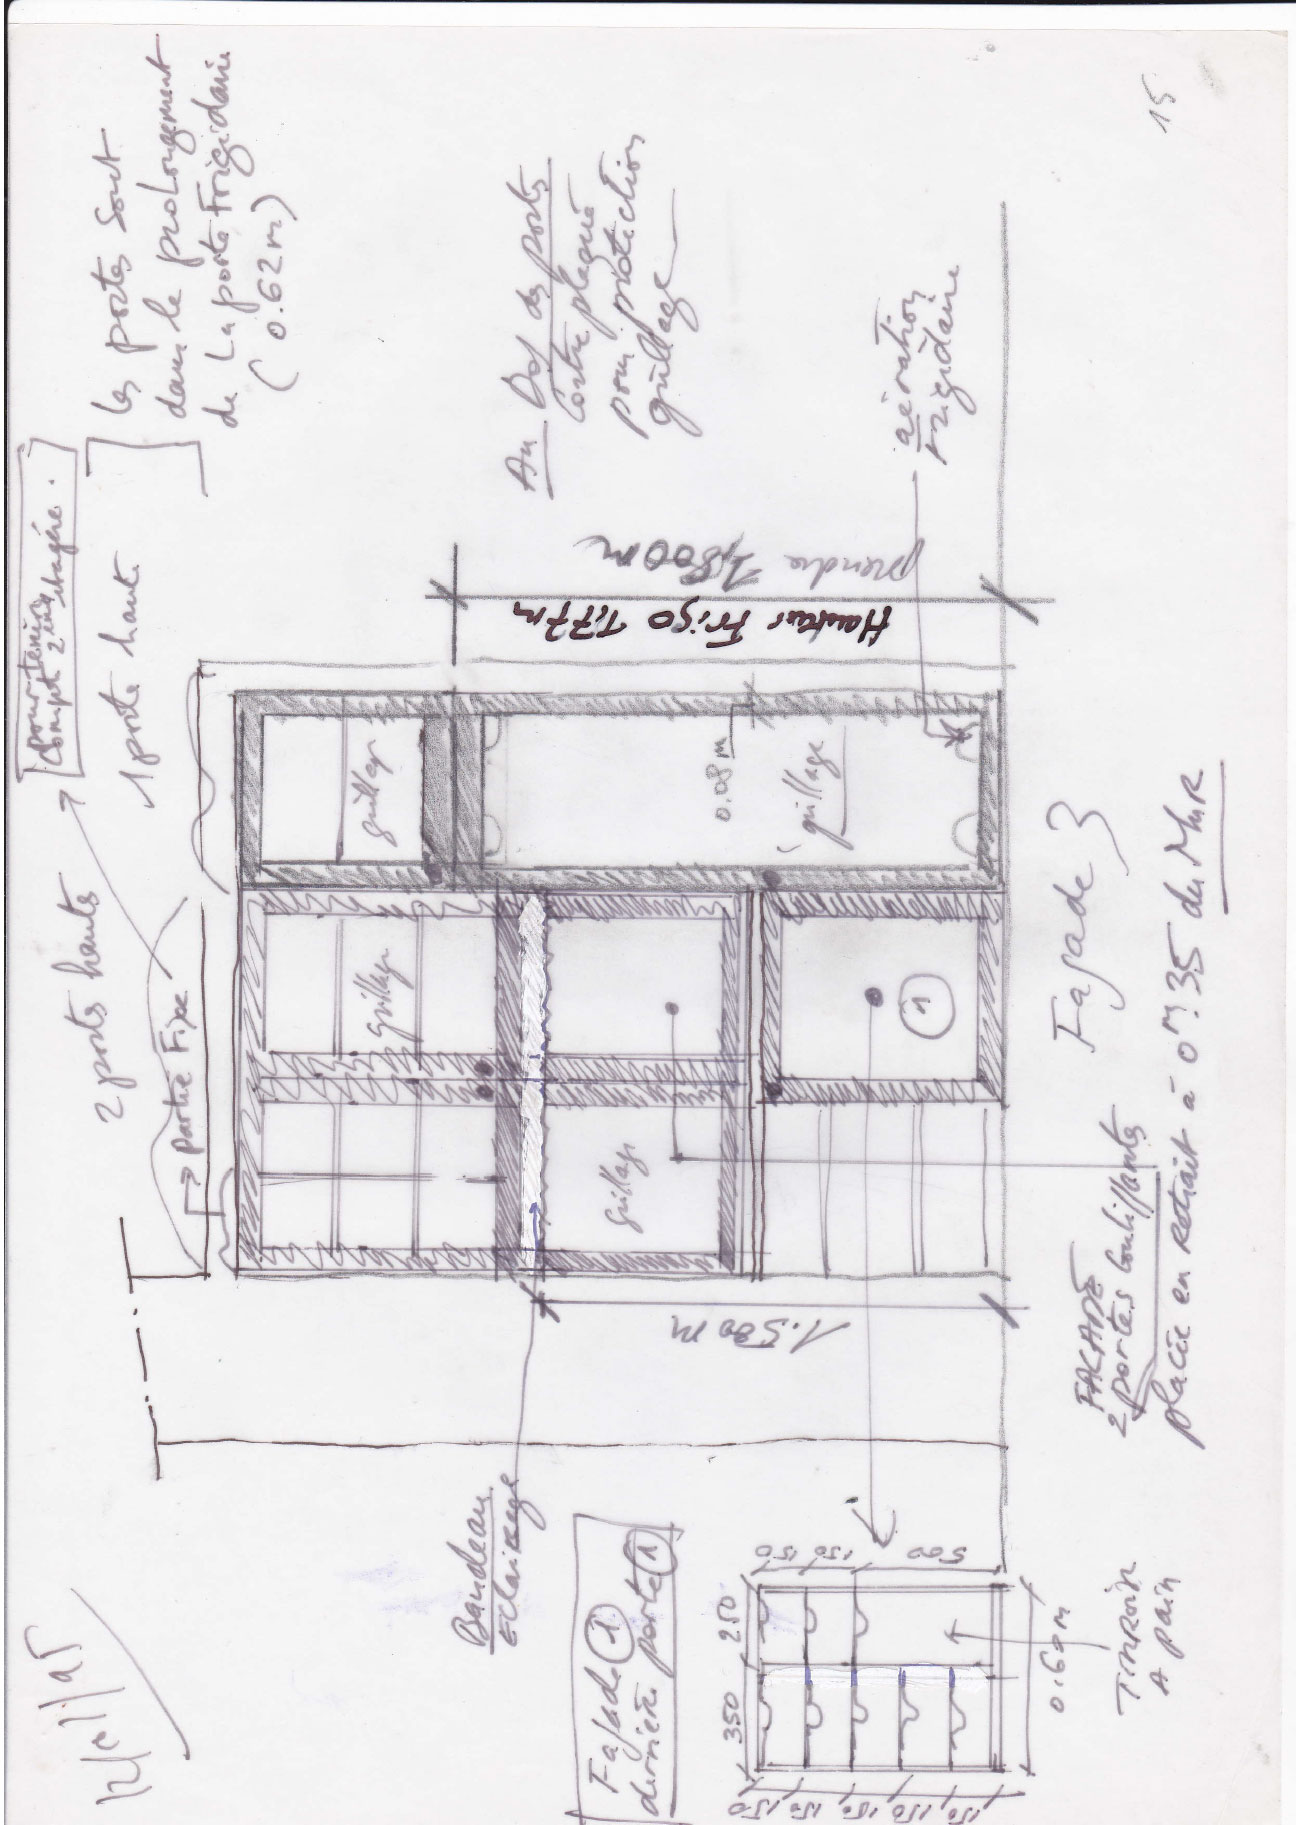 les portes sont
dans le prolongement
de La porte Frigidaire
(0.62m)
pour
Compt 2 étagère.
2 portes hautes
1 porte haute
Partie Fixe
Au Dos des portes
Contre plaqué
pour protection
grillage
aération
Frigidaire
prendre 1,800m
Hauteur Frigo 1,77m
grillage
grillage
grillage
grillage
0.08m
1
1.500m
Bandeau
Eclairage
Façade 3
FACADE
2 portes Coulissantes
placée en Retrait à 0m35 du MuR
Façade 1
derrière porte 1
350
250
150
150
150
150
150
150
150
500
0.60m
TIROIR
A pain
15